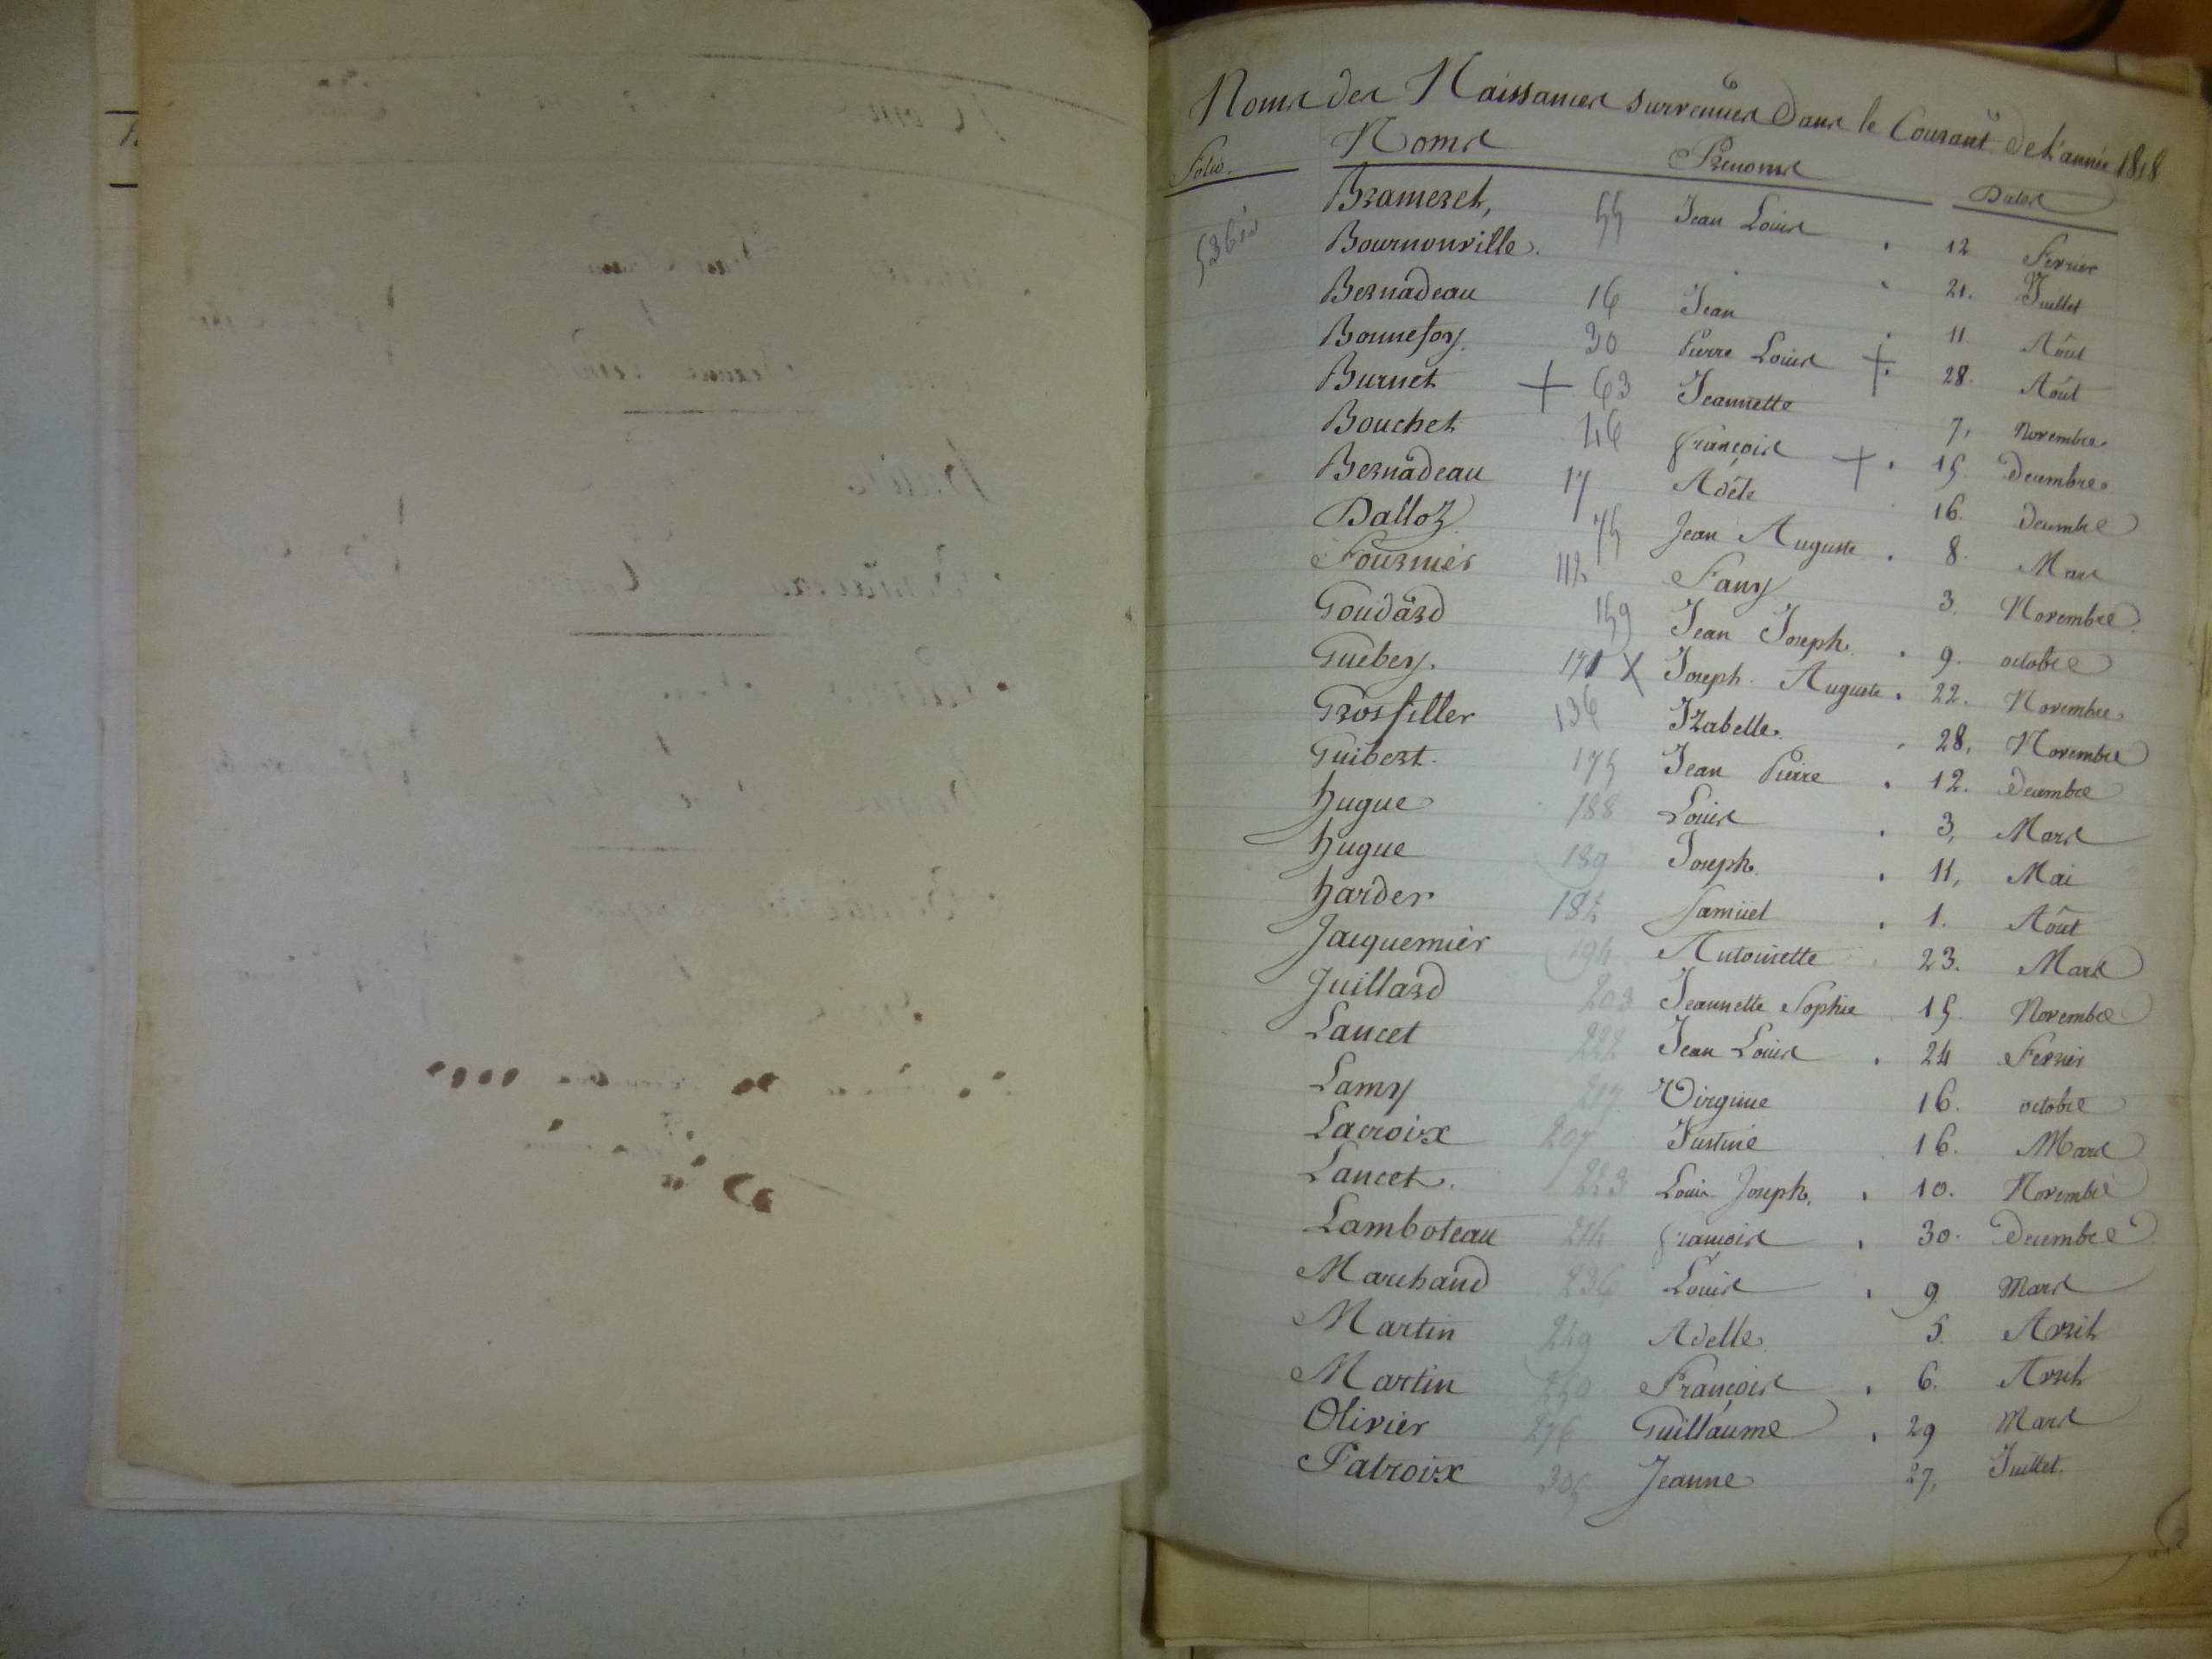 Noms des Naissances survenues Dans le Courant de l'année 1818
Folio. Noms Prenoms Dates
53 bis
Brameret, 55 Jean Louis 12 Fevrier
Bournonville. 21. Juillet
Bernadeau 16 Jean 11 Août
Bonnefoy. 30 Pierre Louis + 28. Août
Burnet + 63 Jeannette 7, Novembre
Bouchet 46 françois + 15 Decembre
Bernadeau 17 Adéle 16. Decembre
Dalloz 75 Jean Auguste 8. Mars
Fournier 114 Fany 3. Novembre
Goudard 159 Jean Joseph 9. octobre
Guebey. 171 X Joseph Auguste 22. Novembre
Grosfiller 136 Izabelle. 28, Novembre
Guibert. 175 Jean Pierre 12. Decembre
hugue 188 Louis 3, Mars
hugue 189 Joseph 11, Mai
harder 184 Samüel 1. Août
Jacquemier 194 Antoinette 23. Mars
Juillard 203 Jeannette Sophie 15 Novembre
Lancet 222 Jean Louis 24 Fevrier
Lamy 217 Virginie 16. octobre
Lacroix 207 Justine 16. Mars
Lancet. 223 Louis Joseph. 10. Novembre
Lamboteau 214 françois 30. Decembre
Marchand 236 Louis 9 Mars
Martin 249 Adelle. 5. Avril
Martin 250 François 6. Avril
Olivier 276 Guillaume 29 Mars
Patroix 305 Jeanne 27, Juillet.